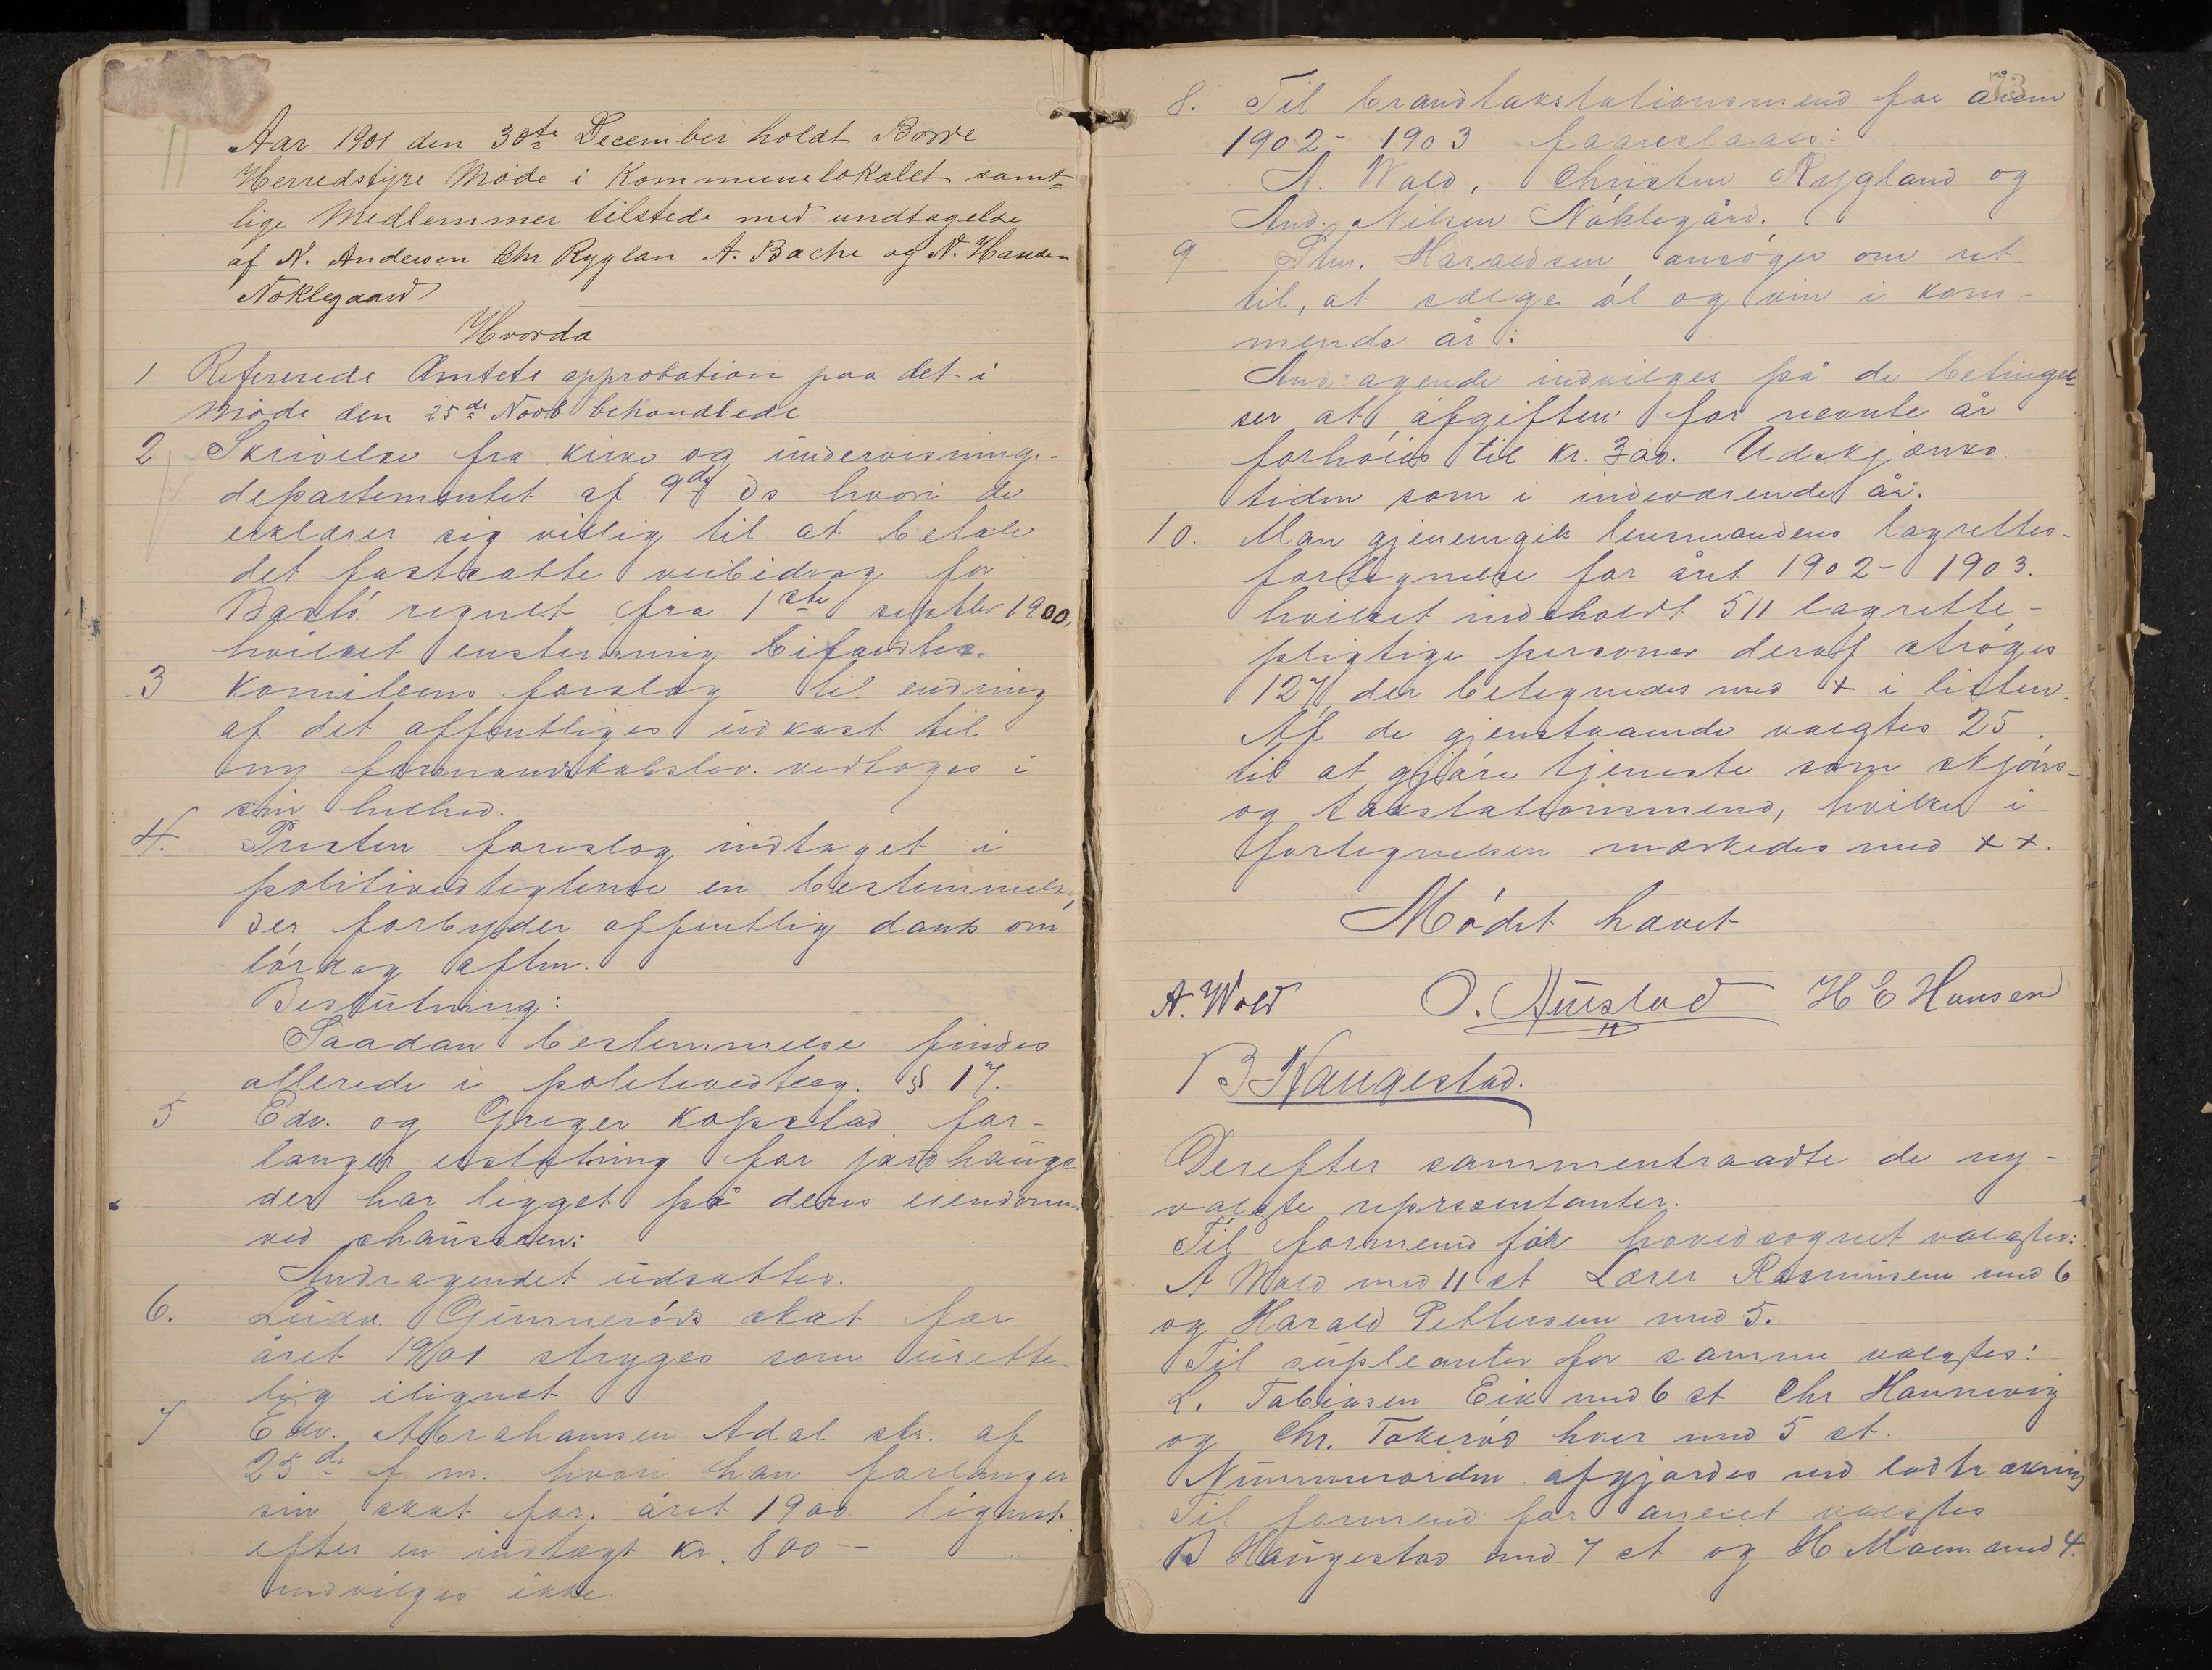 Aar 1901 den 30te December holdt Borre
Herredstyre Møde i Kommunelokalet samt=
lige Medlemmer tilstede med undtagelse
af N. Andersen Chr Ryglan A. Bache og N. Hansen
Nøklegaard
Hvorda
1 Refererede Amtets approbation paa det i
Møde den 25de Novb behandlede
2 Skrivelse fra kirke og undervisnings-
departementet af 9de ds hvori de
erklærer sig villig til at betale
det fastsatte veibidrag for
Bastö regnet fra 1ste septbr 1900,
hvilket enstemmig bifaldtes.
3 Komiteens forslag til endring
af det offentliges udkast til
ny formandskabslov. vedtoges i
sin helhed.
4. Presten foreslog indtaget i
politivedtegterne en bestemmelse,
der forbyder offentlig dans om
lórdag aften.
Beslutning:
Saadan bestemmelse findes
allerede i politivedtæg. § 17.
5 Edv. og Greger Kopstad for-
langer erstatning for jordhauge
der har ligget på deres eiendom
ved chausseen:
Andragendet udsattes.
6. Ludv. Gunnerøds skat for
året 1901 stryges som urette-
lig ilignet
7 Edv. Abrahamsen Adal skr. af
25de f m. hvori han forlanger
sin skat for. året 1900 lignet
efter en indtægt kr. 800 --
indvilges ikke
73
8. Til brandtakstationsmend for årene
1902- 1903 foreslaaes:
A. Wold, Christen Rygland og
And. Nilsen Nóklegård.
9 Haraldsen ansóger om ret
til, at sælge ól og vin i kom-
mende år:
Andragende indvilges på de betingel-
ser at afgiften for nevnte år
forhóies til kr. 300. Udskjænks.
tiden som i indeværende år.
10. Man gjenemgik lensmandens lagrettes-
fortegnelse for året 1902- 1903.
hvilket indeholdt 511 lagrette-
pligtige personer deraf strøges
127, der betegnedes med + i listen.
Af de gjenstaaende valgtes 25
til at gjóre tjeneste som skjóns-
og takstationsmend, hvilke i
fortegnelsen merkedes med + +.
Mødet hævet
A. Wold O. Aüstad H E Hansen
B Haugestad.
Derefter sammentraadte de ny-
valgte reprsentanter.
Til formend for hovedsognet valgtes:
A Wold med 11 st Lærer Rasmusen med 6
og Harald Pettersen med 5.
Til supleanter for samme valgtes:
L. Tobiasen Eik med 6 st Chr Hannevig
og Chr. Tokeród hver med 5 st.
Nummerorden afgjordes ved lodtrækning
Til formend for anexet valgtes
B Haugestad med 7 st og H Moen med 4.